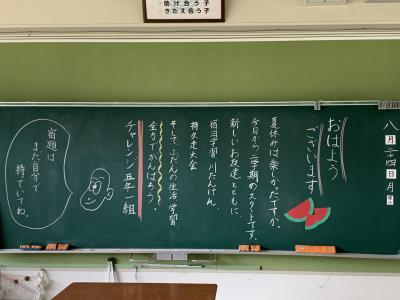 ○助け合う子
○きたえ合う子
八月二十四日月
おはよう
ございます
夏休みは楽しかったですか。
今日から二学期のスタートです。
新しいお友達とともに、
宿泊学習 川たんけん、
持久走大会
そして、ふだんの生活 学習
全力で、がんばろう。
チャレンジ 五年一組
宿題は
まだ自分で
持っていてね。